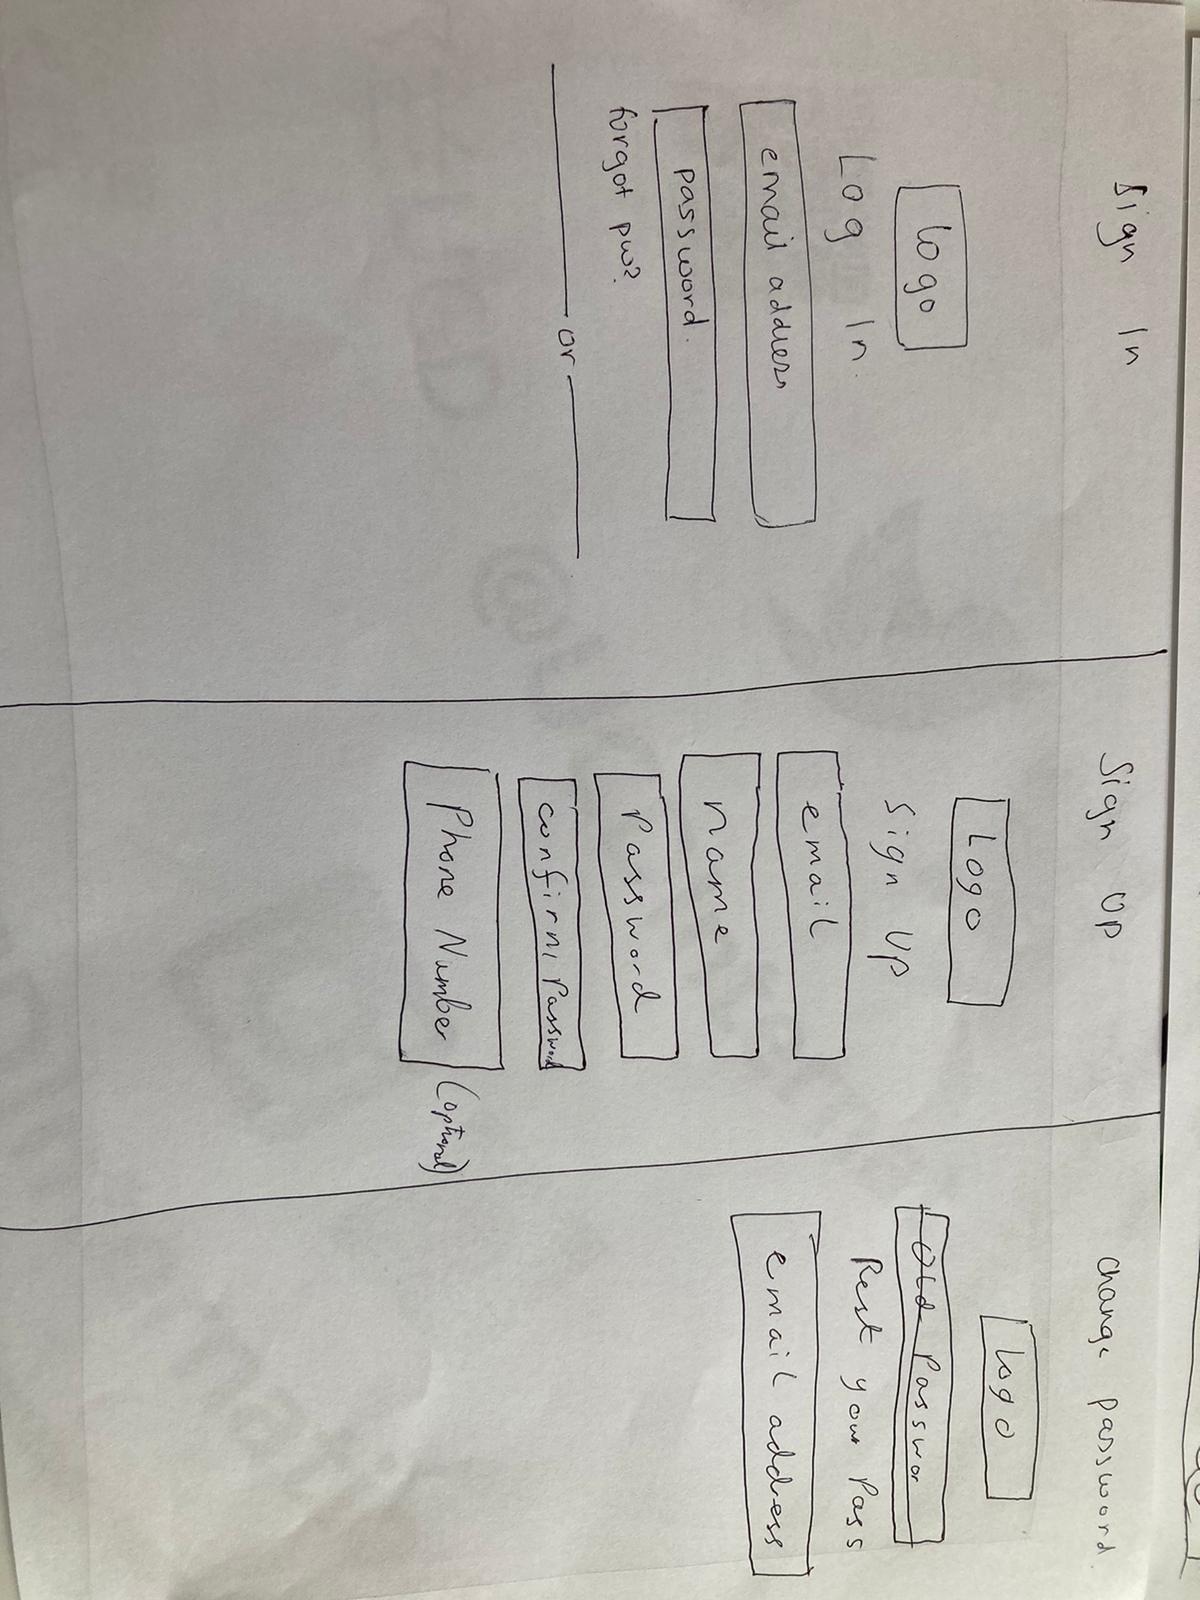 Sign In
Logo
Log In.
email address
password.
forgot pw?
or
Sign Up
Logo
Sign Up
email
name
Password
confirm Password
Phone Number (optional)
Change password.
Logo
Old Passwor
Rest your Pass
email address